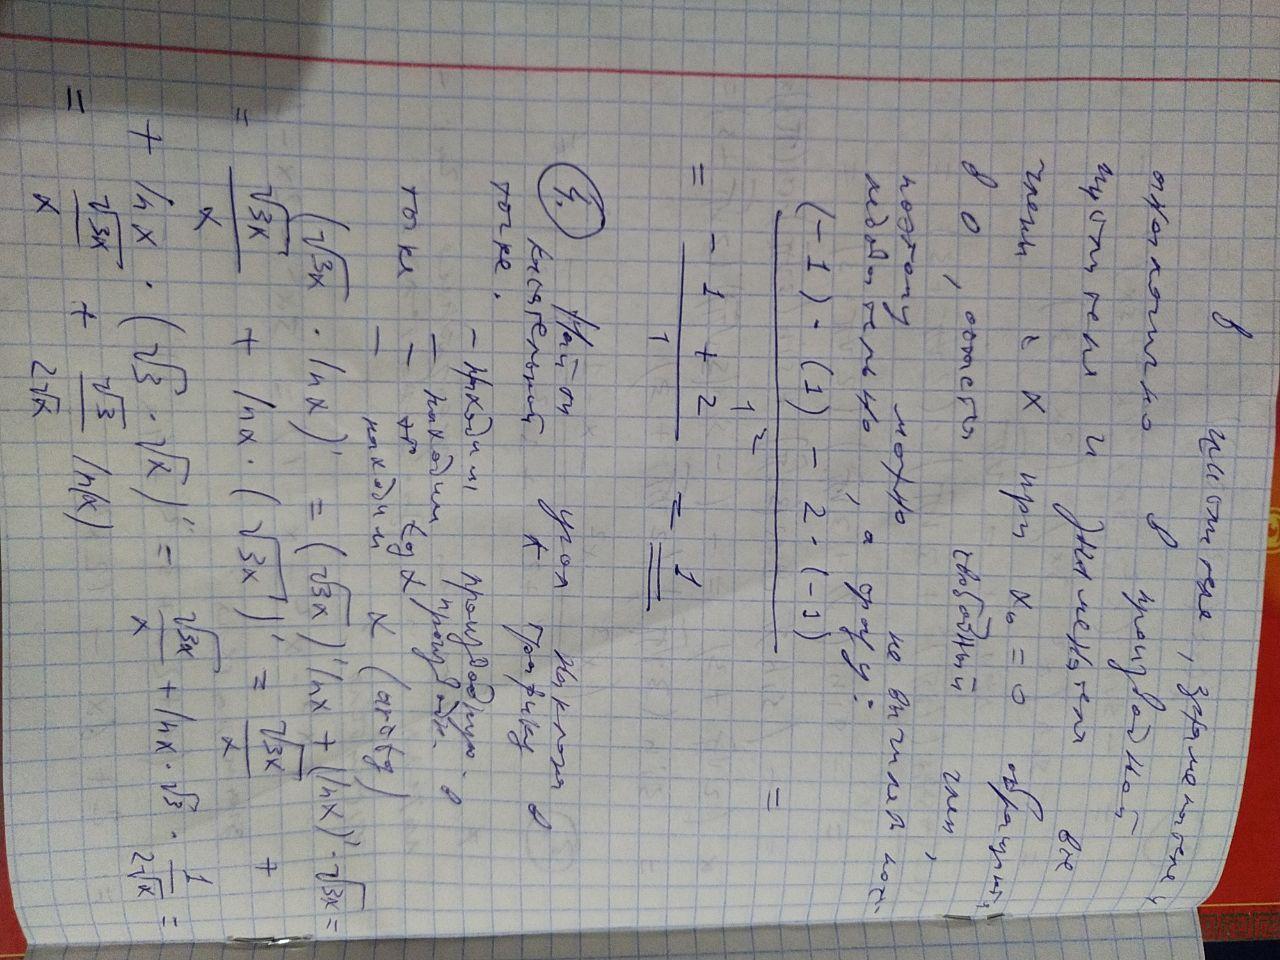 В числителе, знаменателе и
аналогично в производной
числителя и знаменателя все
члены с x при x₀ = 0 обращаются
в 0, остается свободный член,
поэтому можно не вычислять пос-
ледовательно, а сразу:
(-1) · (1) - 2 · (-1)
=
1²
= -1 + 2
1
= 1
4. Найти угол наклона
касательной к графику в
точке.
- находим производную.
- находим производн. в
точке - это tg α
- находим α (arctg)
(√3x · ln x)' = (√3x)' ln x + (ln x)' · √3x =
= √3x/x + ln x · (√3x)' = √3x/x +
+ ln x · (√3 · √x)' = √3x/x + ln x · √3 · 1/2√x =
= √3x/x + √3/2√x ln(x)